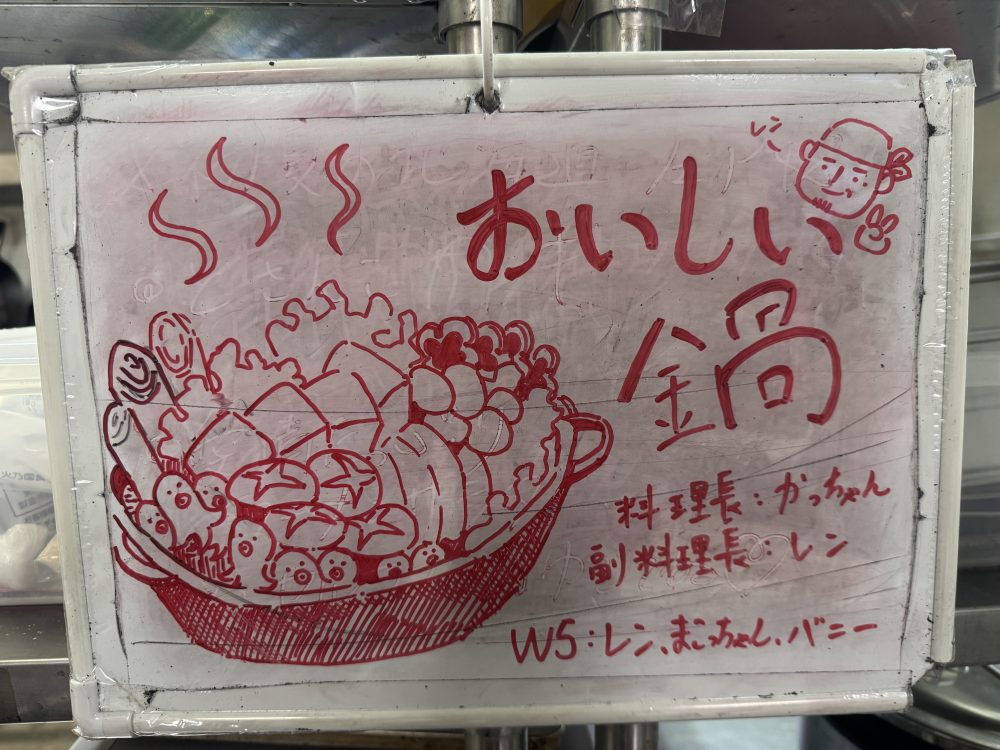 レン
おいしい
鍋
料理長：かっちゃん
副料理長：レン
WS：レン、まっちゃん、バニー